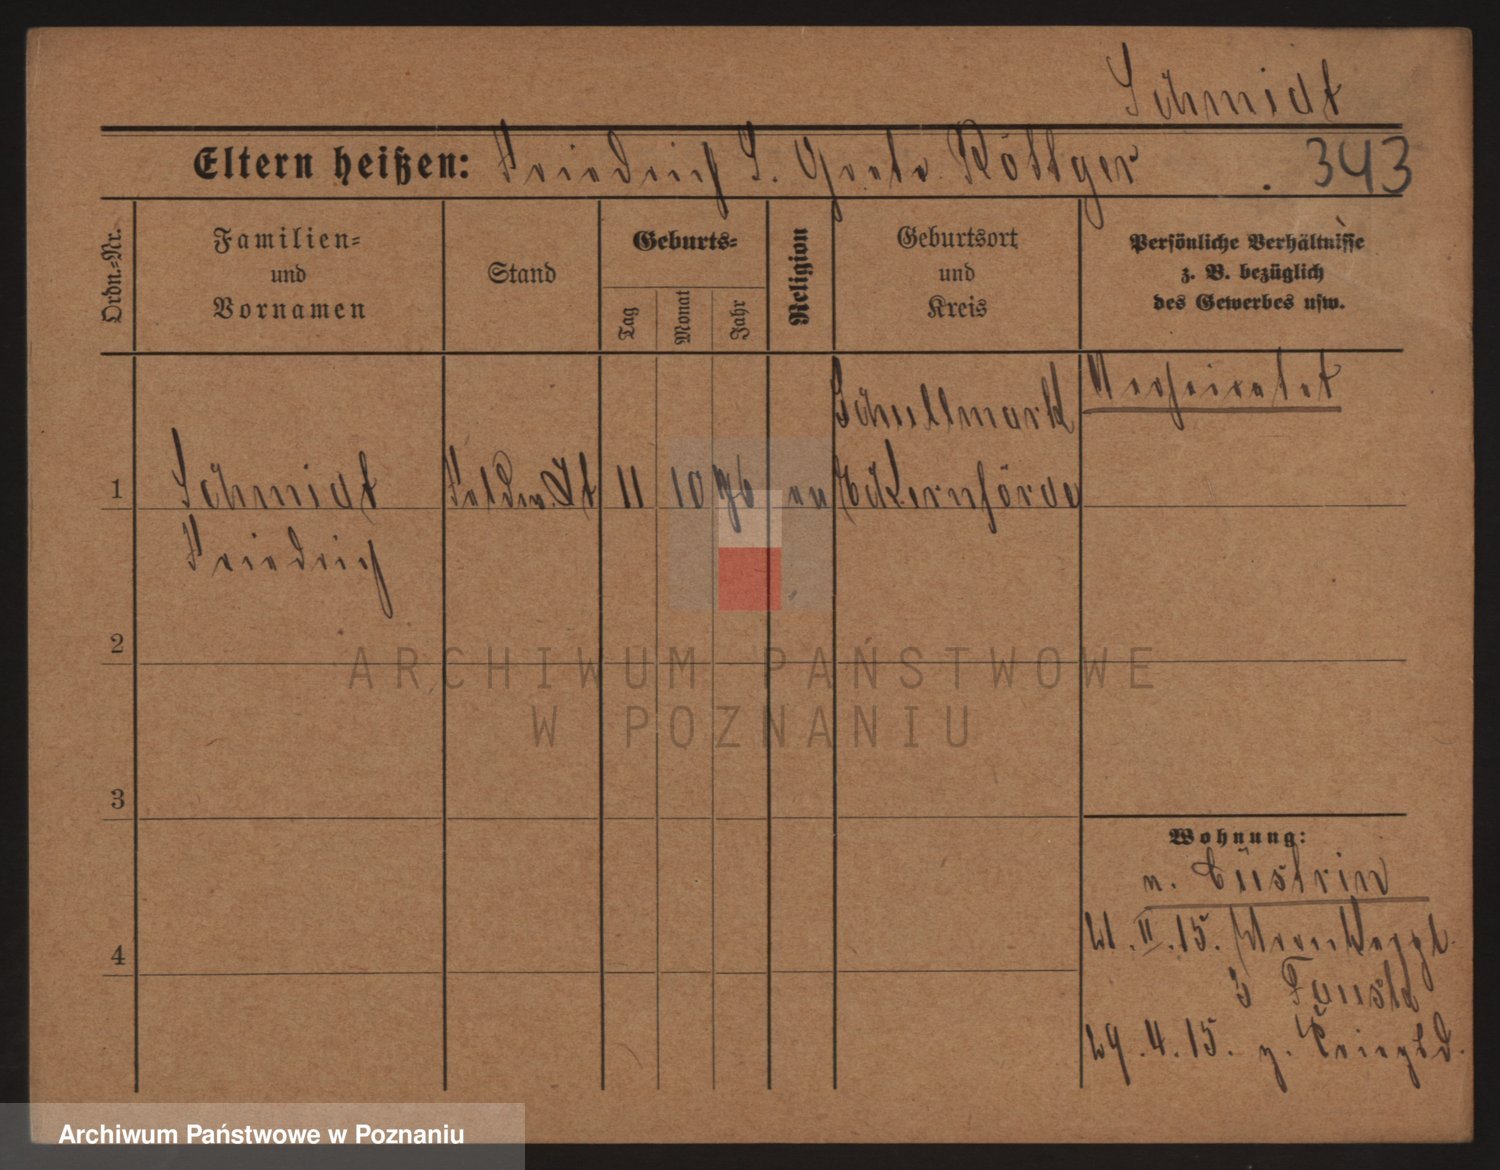 Schmidt
Eltern heißen: Friedrich S. Grete Röttger 343
Ordn.-Nr.
Familien-
und
Vornamen
Stand
Geburts-
Tag
Monat
Jahr
Religion
Geburtsort
und
Kreis
Persönliche Verhältnisse
z. B. bezüglich
des Gewerbes usw.
Verheiratet
1 Schmidt 11 10 76 ev Eckernförde
Friedrich
2
ARCHIWUM PAŃSTWOWE
W POZNANIU
3
Wohnung:
n. Cüstrin
4
21.II.15.
3
29.4.15. z.
Archiwum Państwowe w Poznaniu